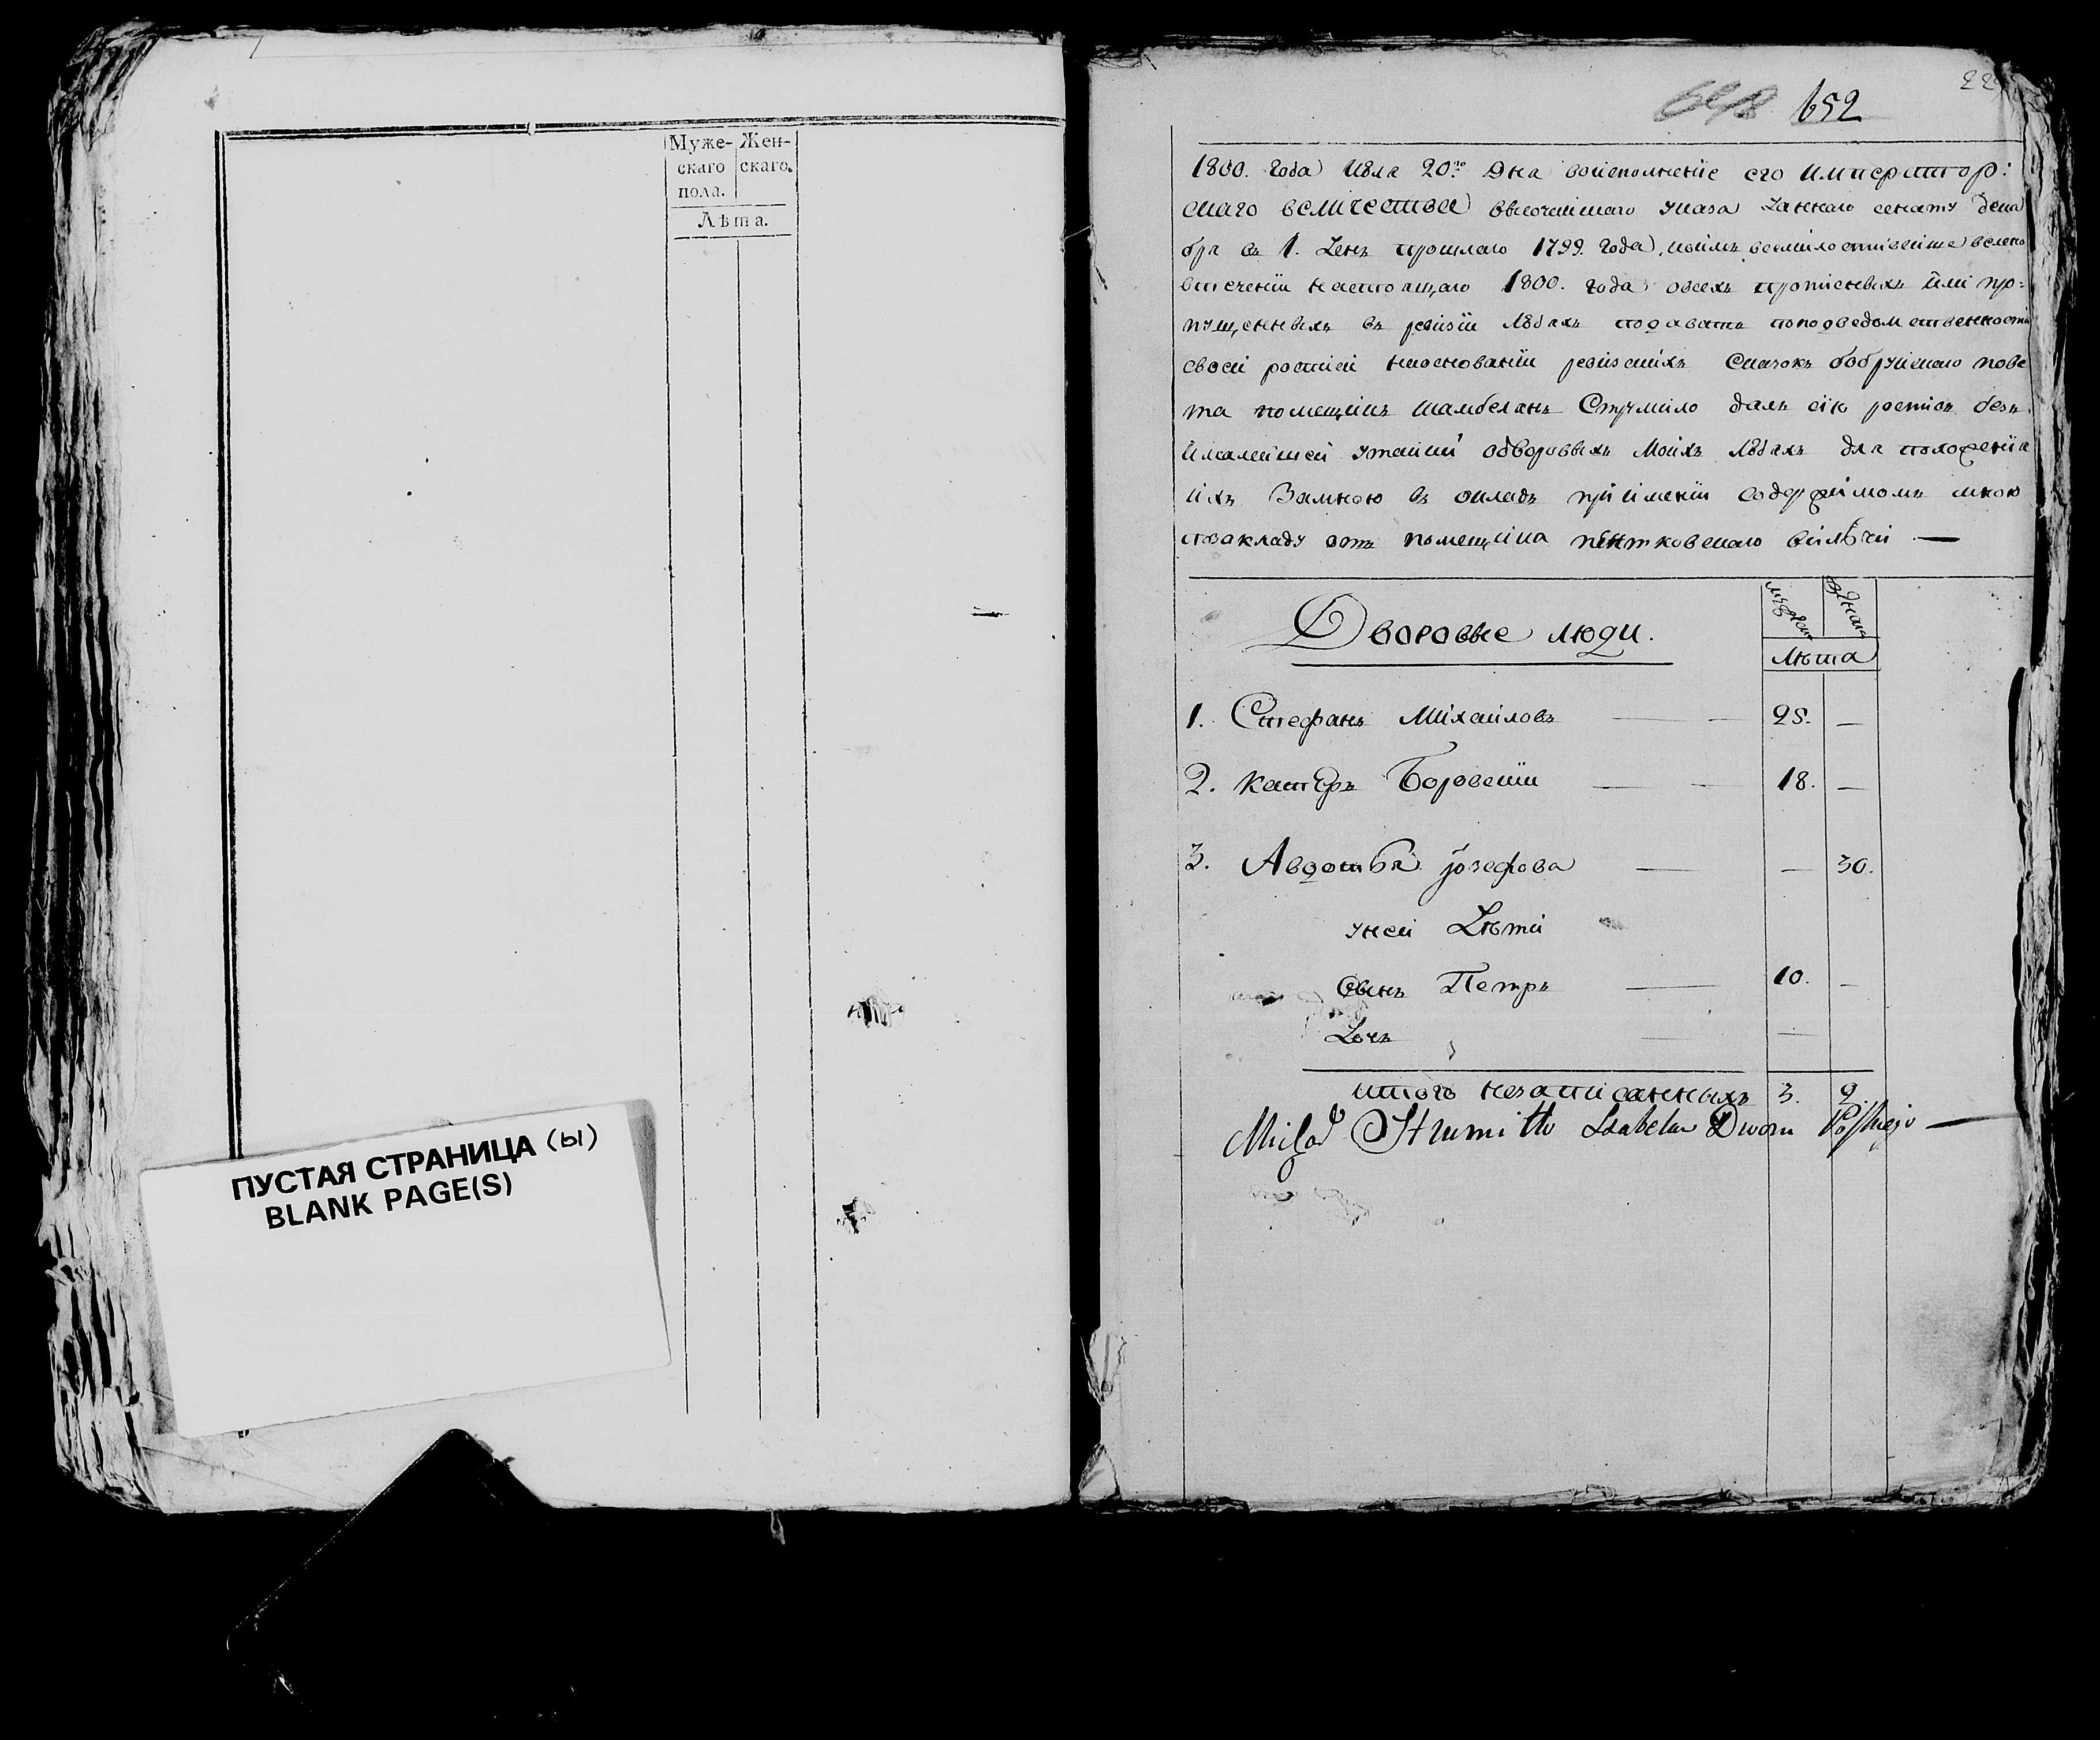 Муже- Жен-
скаго скаго.
пола.
Лѣта.
ПУСТАЯ СТРАНИЦА (Ы)
BLANK PAGE(S)
22
652
1800. года Июля 20го Дня воисполнение его Император:
скаго величества высочайшаго указа даннаго сенату дека
бря въ 1. день прошлаго 1799. года, коимъ всемилостивейше велено
втечении настоящаго 1800. года овсехъ прописныхъ или про:
пущенныхъ въ ревизии людяхъ подавать поподведомственности
своей росписи наосновании ревизскихъ сказокъ бобруйскаго пове
та помещикъ шамбелянъ Струмило далъ сию роспись безъ
ималейшей утайки одворовыхъ моихъ людяхъ для положения
ихъ замною въ окладъ при имении содержимомъ мною
позакладу отъ помещика
Дворовые люди.
Лѣта
1. Стефанъ Михайловъ — 25. —
2. Боровский — 18. —
3. Авдотья Іозефова — — 30.
уней Дѣти
Сынъ Петръ — 10. —
Дочь — —
итого незаписанныхъ 3. 2.
Strumiłło Dworu